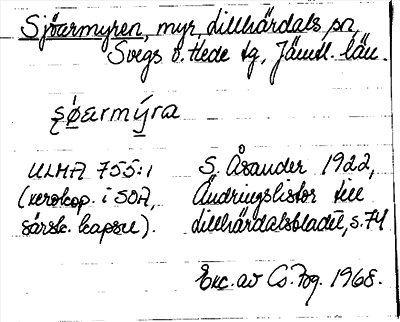 Sjöarmyren, myr, Lillhärdals sn,
Svegs o. Hede tg, Jämtl. län.
şø̀ɐrmýra
ULMA 755:1
(xerokop. i SOA,
särsk. kapsel).
S. Åsander 1922,
Ändringslistor till
Lillhärdalsbladet, s. 74
Exc. av Cs. Fog. 1968.